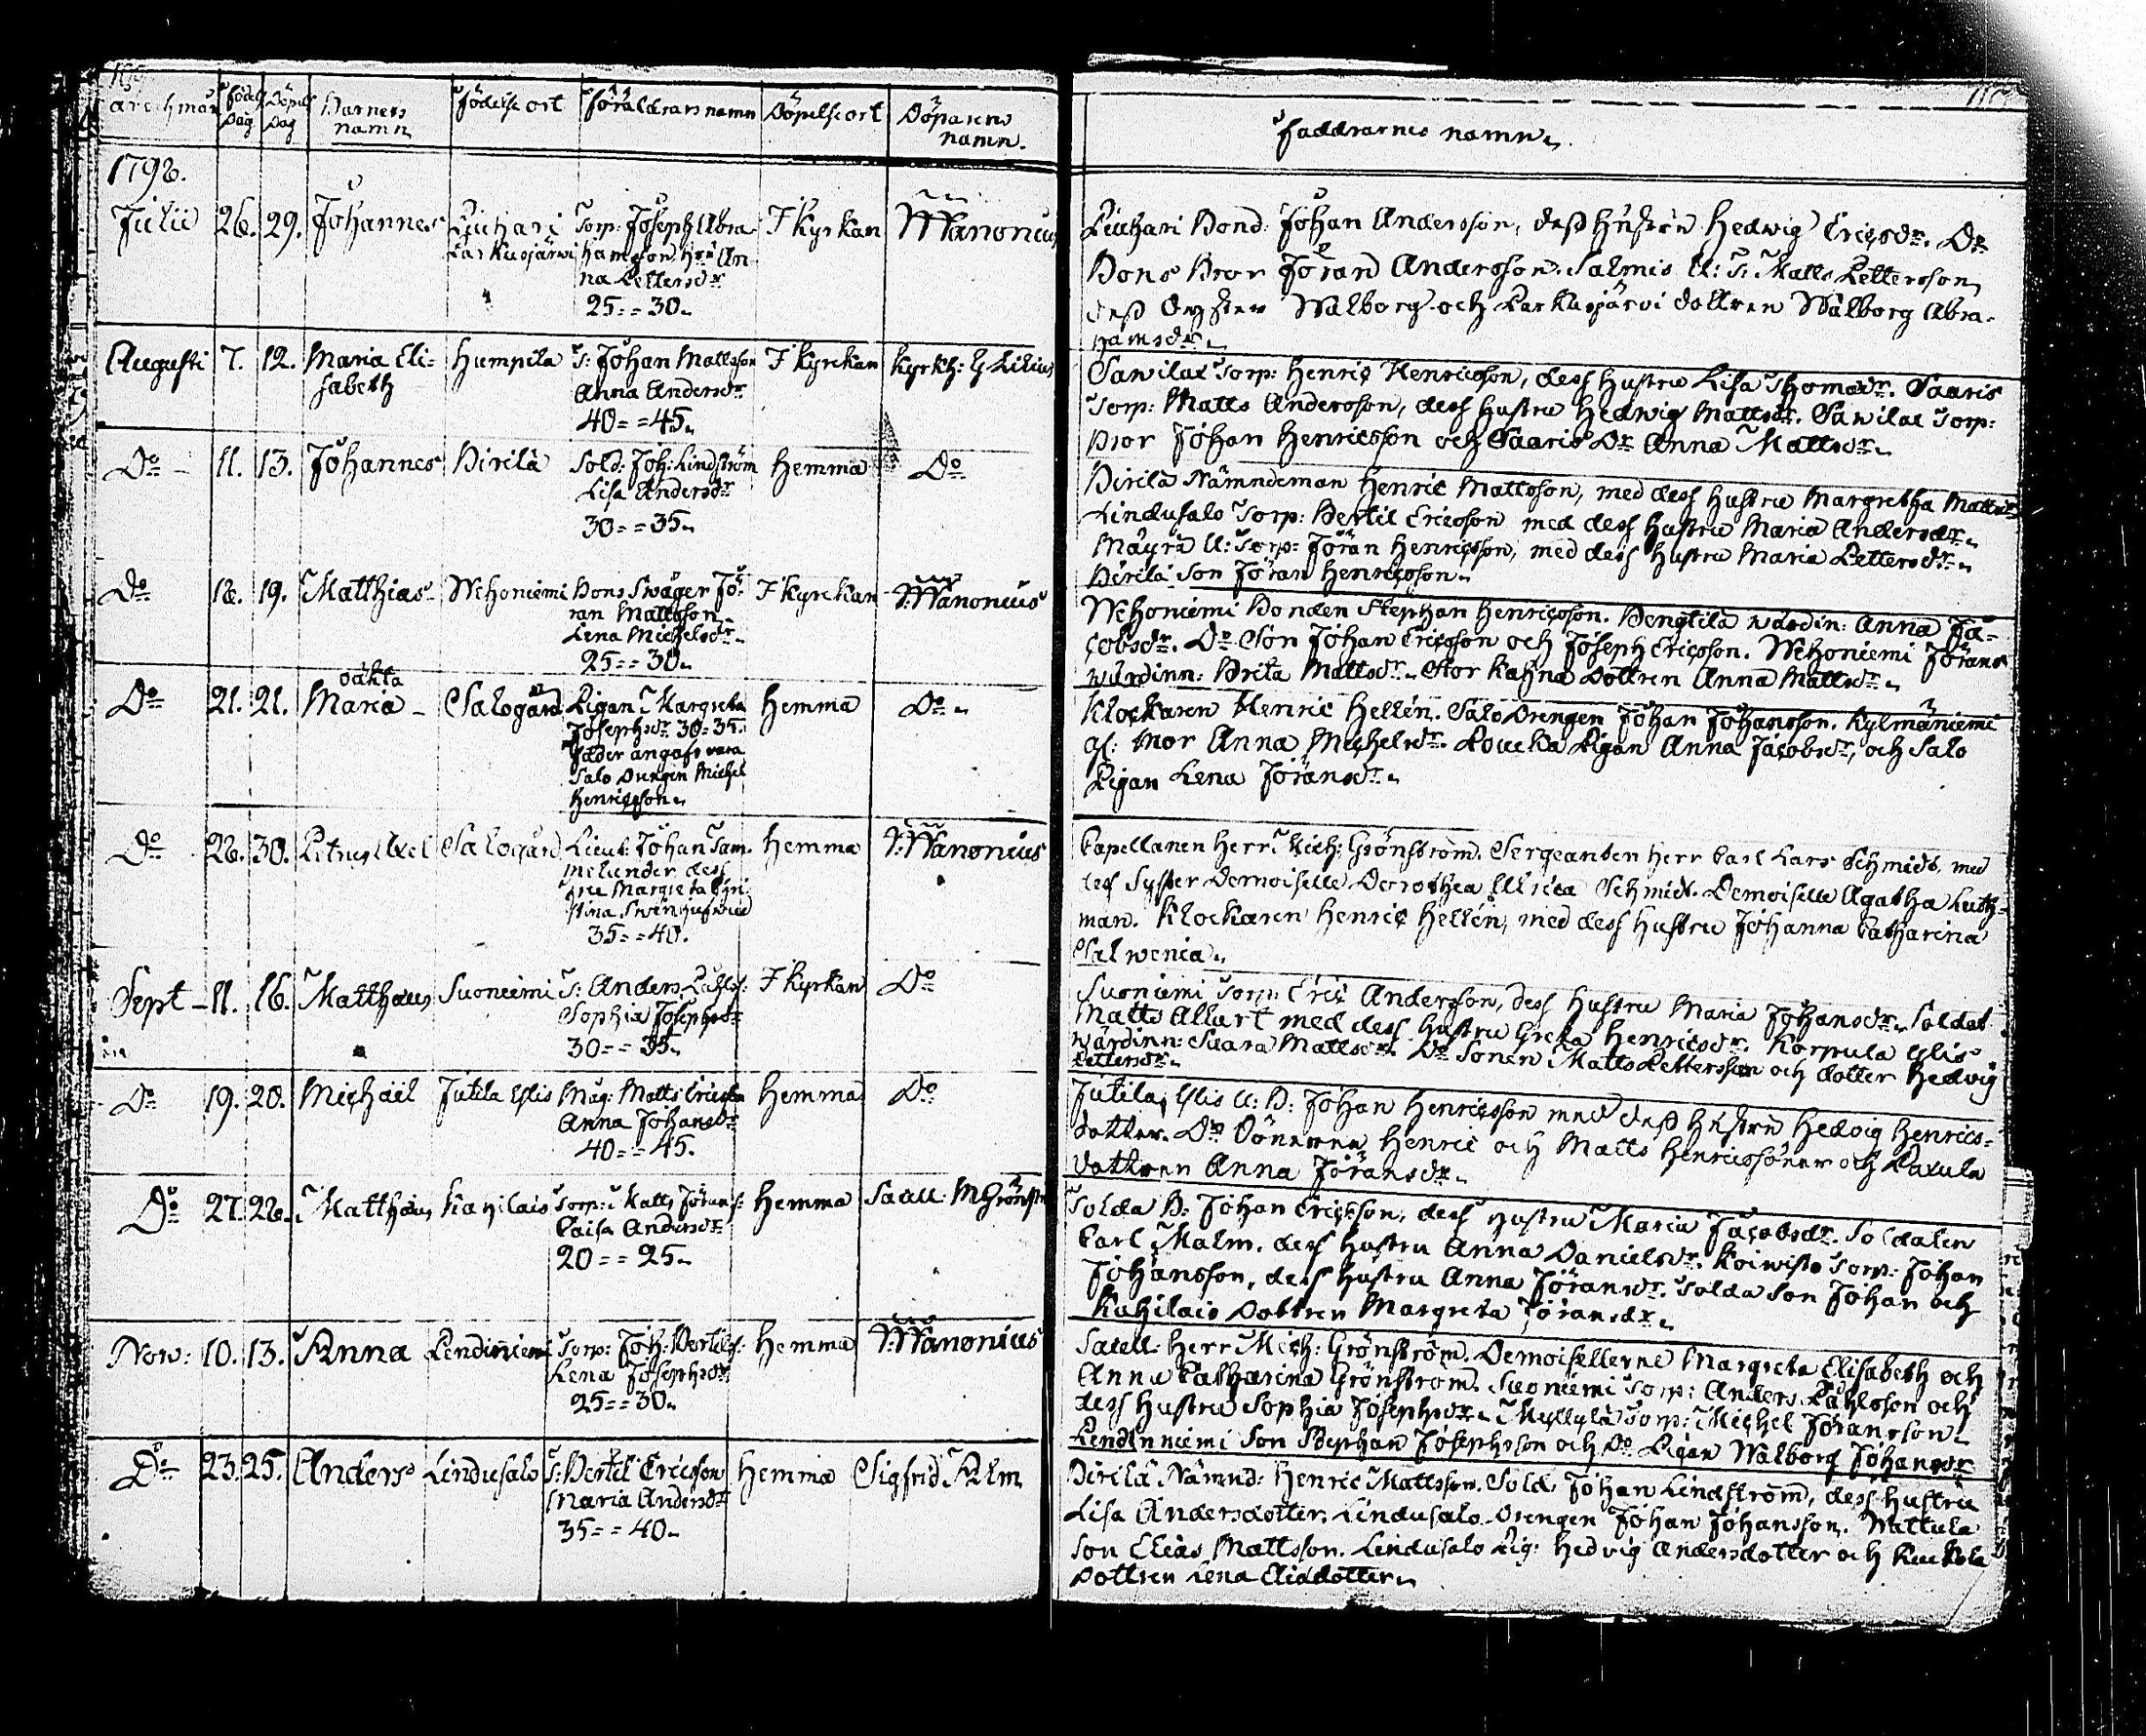 år och mån
Födels Dag
Döpels Dag
Barnets namn
Födelse ort
Föräldrars namn
Döpelse ort
Döparens namn.
Faddrarnes namn.
1792.
Julii 26. 29. Johannes
Torp: Joseph Abra-
hamsson Hru An-
na Pettersdr
25 = = 30.
I Kyrkan
Wanonius
Bond: Johan Andersson, dess hustru Hedwig Ericsdr. Do
Bons Bror Jöran Andersson. Salmis U: T: Matts Pettersson
dess Syster Walborg och Parkusjärvi dottren Walborg Abra-
hamsdr.
Augusti 7. 12. Maria Eli-
sabeth
Humpila
T: Johan Mattsson
Anna Andersdr
40 = = 45.
I Kyrckan
Kyrkh: G Lilius
Sawilax Torp: Henric Henricsson, dess hustru Lisa Thomædr. Saaris
Torp: Matts Andersson, dess hustru Hedwig Mattsdr. Sawilax Torp:
Bror Johan Henricsson och Saaris Dr Anna Mattsdr.
Do 11. 13. Johannes
Pirilä
Sold: Joh: Lindström
Lisa Andersdr
30 = = 35.
Hemma
Do
Pirilä Nämndeman Henric Mattsson, med dess hustru Margretha Mattsdr
Lindusalo Torp: Bertil Ericsson med dess hustru Maria Andersdr.
Mäyrä U: Torp: Jöran Henricsson, med dess hustru Maria Pettersdr.
Pirilä Son Jöran Henricsson.
Do 18. 19. Matthias
Wehoniemi
Bons Swåger Jö-
ran Mattsson
Lena Michelsdr
25 = = 30.
I Kyrckan
Wanonius
Wehoniemi Bonden Stephan Henricsson. Bengtilä wärdin: Anna Ja-
cobsdr. Do Son Johan Ericsson och Joseph Ericsson. Wehoniemi Jörans
wärdinn: Brita Mattsdr. Stor Kahna Dottren Anna Mattsdr.
Do 21. 21. oäkta
Maria
Salogård
Pigan Margreta
Josephsdr 30 = 35.
Fader angafs vara
Salo Drängen Michel
Henricsson.
Hemma
Do
Klockaren Henric Hellén. Salo Drengen Johan Johansson. Kylmäniemi
gl: Mor Anna Michelsdr. Loucka Pigan Anna Jacobsdr, och Salo
Pigan Lena Jöransdr.
Do 28. 30. Petrus Axel
Salogård
Lieut: Johan Sam.
Melander dess
Fru Margreta Chri-
stina Swinhufwud
35 = = 40.
Hemma
Wanonius
Capellanen Herr Mich: Grönström. Sergeanten Herr Carl Lars Schmidt, med
dess Syster Demoiselle Dorothea Ulrica Schmidt. Demoiselle Agatha Luth-
man. Klockaren Henric Hellén, med dess hustru Johanna Catharina
Salwenia.
Sept 11. 16. Matthæus
Suoniemi
T: Anders Påhlss:
Sophia Josephsdr
30 = = 35.
I Kyrkan
Do
Suoniemi Torp: Eric Andersson, dess hustru Maria Johansdr. Soldat
Matts Allart med dess hustru Greta Henricsdr. Korpula Ylis
wärdinn: Saara Mattsdr. Do Sonen Matts Pettersson och dotter Hedvig
Pettersdr.
Do 19. 20. Michäel
Jutila Ylis
Måg: Matts Ericsson
Anna Johansdr
40 = = 45.
Hemma
Do
Jutila Ylis U: B: Johan Henricsson med dess hustru Hedvig Henrics-
dotter. Do Sönerne Henric och Matts Henricssöner och Paxula
dottren Anna Jöransdr.
Do 27. 28. Matthæus
Kahilais
Torp: Matts Jöranss:
Caisa Andersdr
20 = = 25.
Hemma
Sacell. M Grönstr
Tolda B: Johan Ericsson, dess hustru Maria Jacobsdr. Soldaten
Carl Malm. dess hustru Anna Danielsdr. Koiwisto Torp: Johan
Johansson, dess hustru Anna Jöransdr. Tolda Son Johan och
Kahilais Dottren Margreta Jöransdr.
Nov: 10. 13. Anna
Lendiniemi
Torp: Joh: Bertilss:
Lena Josephsdr
25 = = 30.
Hemma
Wanonius
Sacell: Herr Mich: Grönström. Demoisellerne Margreta Elisabeth och
Anna Catharina Grönström. Suoniemi Torp: Anders Påhlsson och
dess hustru Sophia Josephsdr. Myllylä Torp: Michel Johansson.
Lendinniemi Son Stephan Josephsson och Do Pigan Walborg Johansdr
Do 23. 25. Anders
Lindusalo
T: Bertil Ericsson
Maria Andersdr
35 = = 40.
Hemma
Sigfrid Alm
Pirilä Nämnd: Henric Mattsson. Sold. Johan Lindström, dess hustru
Lisa Andersdotter. Lindusalo Drengen Johan Johansson. Wattula
Son Elias Mattsson. Lindusalo Pig: Hedvig Andersdotter och Kuckola
Dottren Lena Eliædotter.